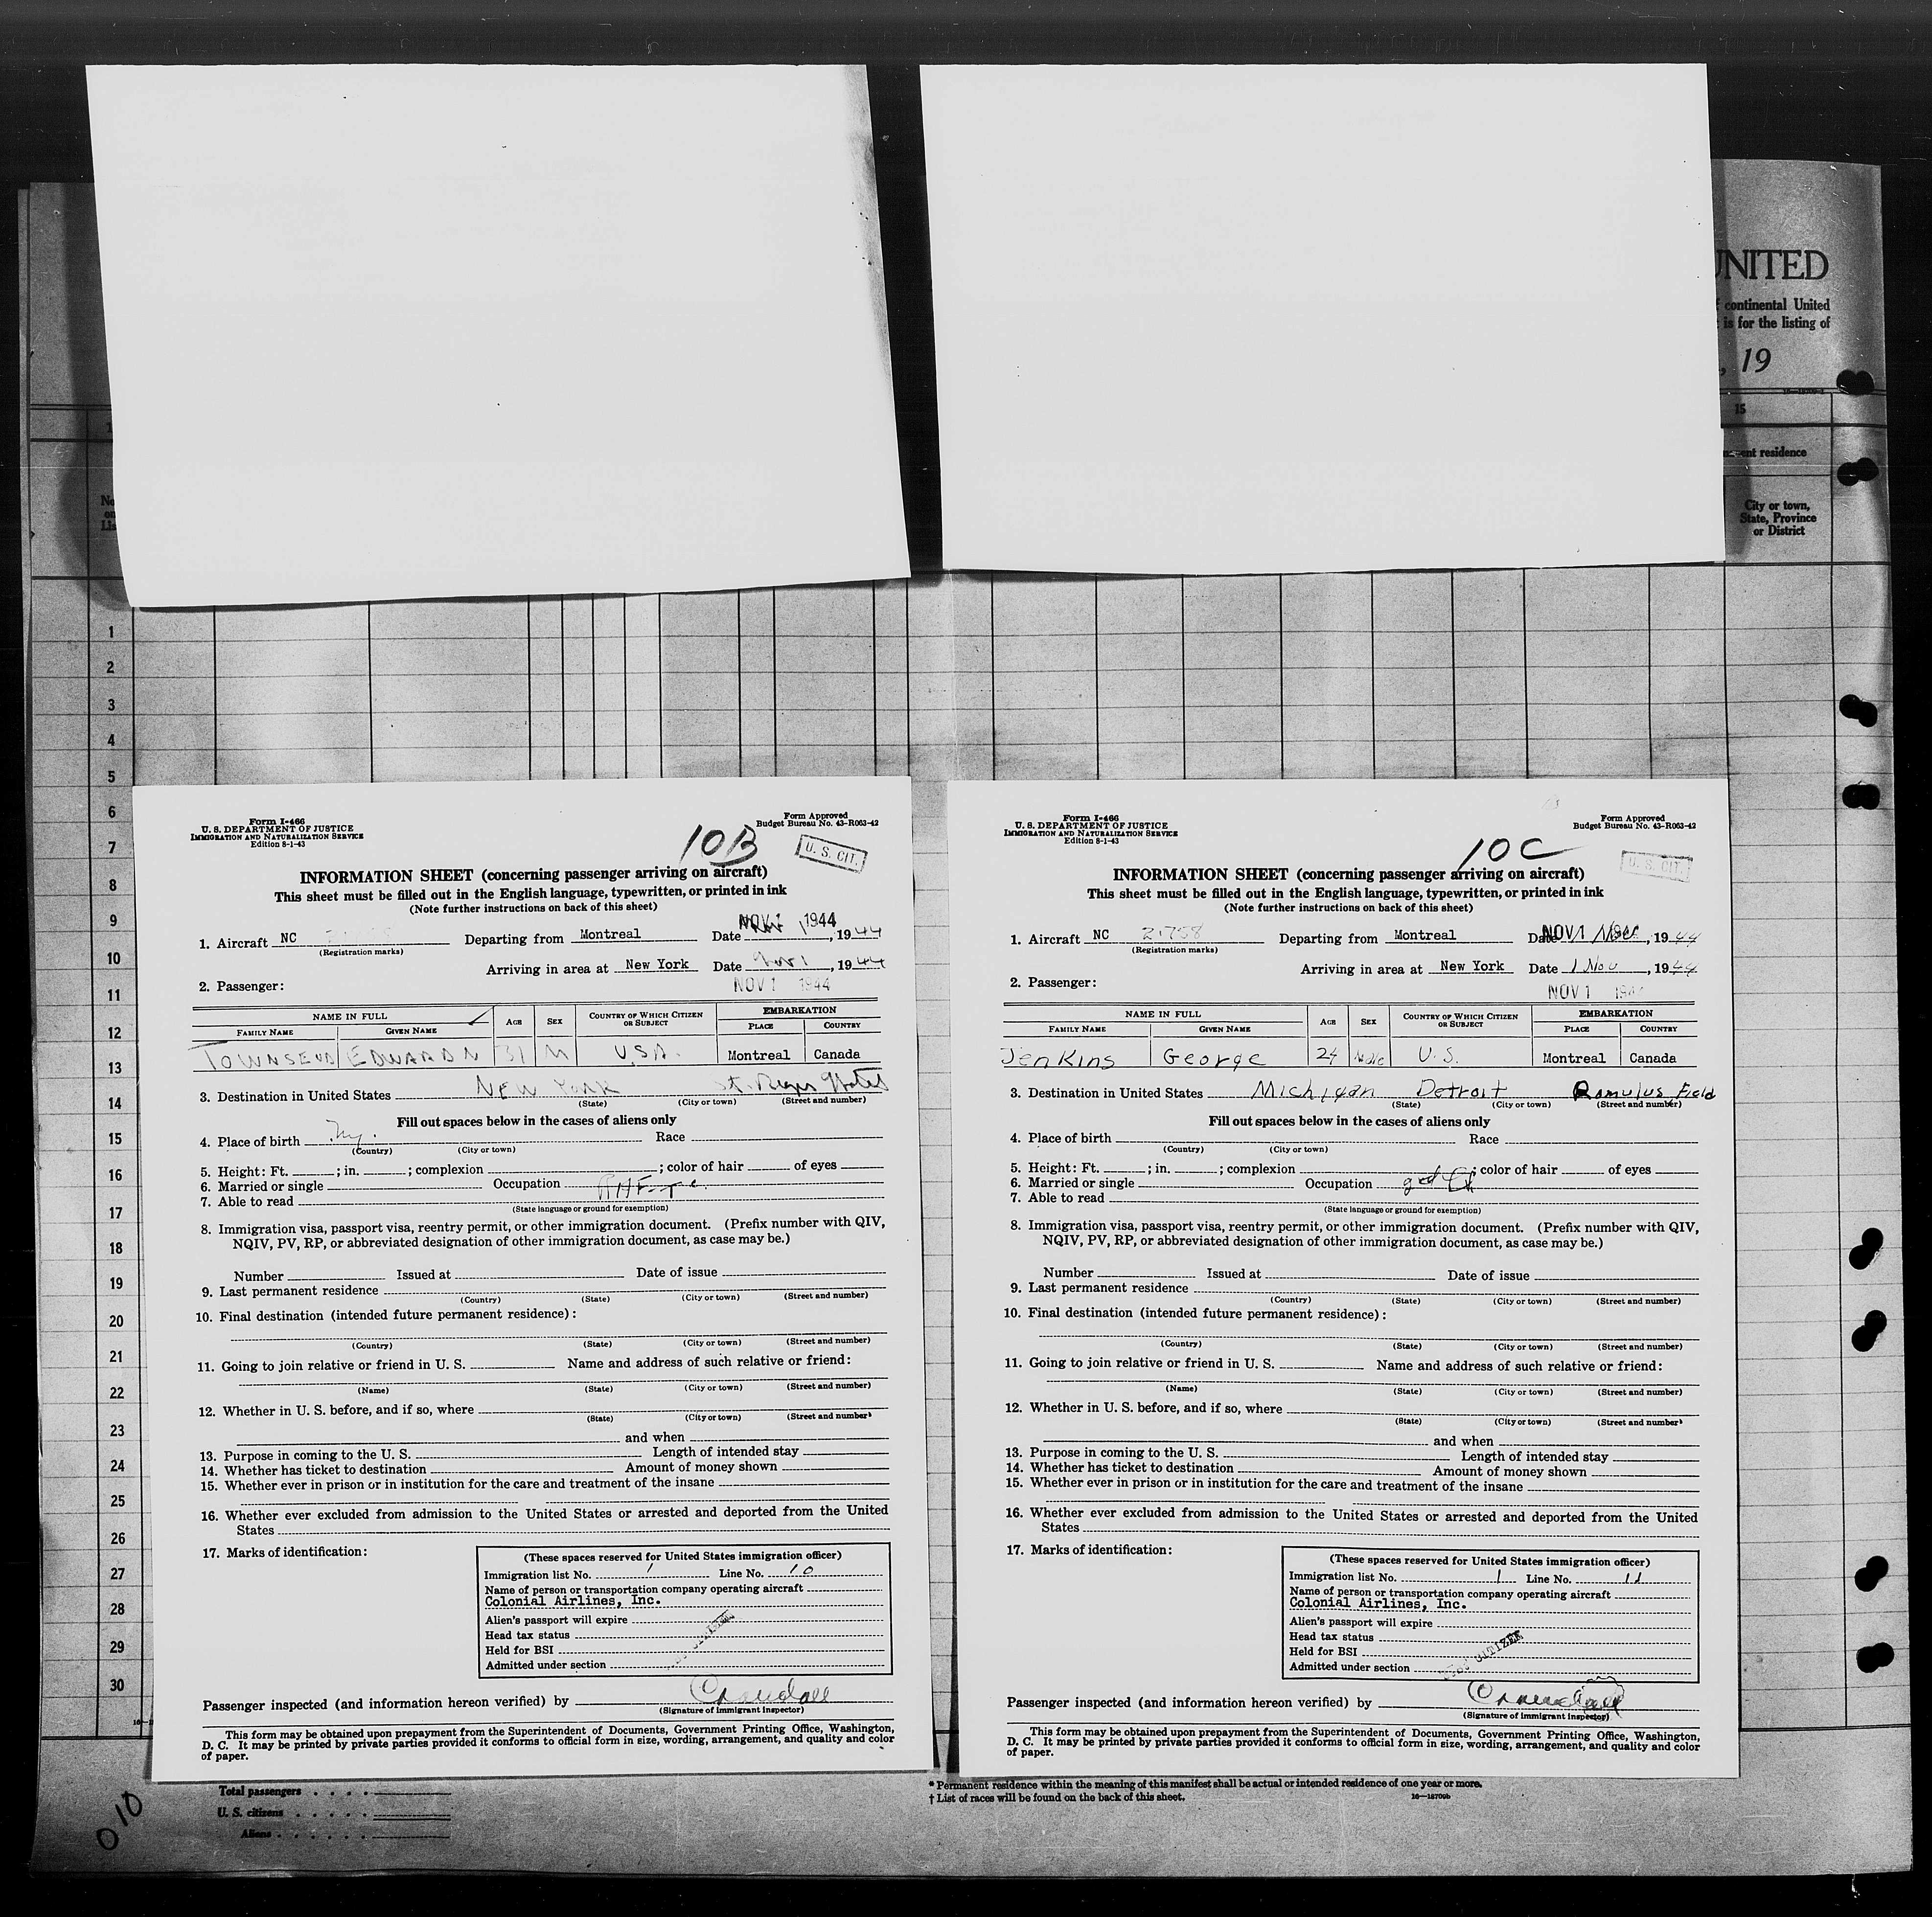 UNITED
continental United
is for the listing of
, 19
15
residence
City or town,
State, Province
or District
1
2
3
4
5
6
7
8
9
10
11
12
13
14
15
16
17
18
19
20
21
22
23
24
25
26
27
28
29
30
Form I-466
U. S. DEPARTMENT OF JUSTICE
IMMIGRATION AND NATURALIZATION SERVICE
Edition 8-1-43
Form Approved
Budget Bureau No. 43-R063-42
10B
U. S. CIT.
INFORMATION SHEET (concerning passenger arriving on aircraft)
This sheet must be filled out in the English language, typewritten, or printed in ink
(Note further instructions on back of this sheet)
NOV 1 1944
1. Aircraft NC Departing from Montreal Date , 1944
(Registration marks)
Arriving in area at New York Date Nov 1, 1944
2. Passenger: NOV 1 1944
NAME IN FULL AGE SEX COUNTRY OF WHICH CITIZEN OR SUBJECT EMBARKATION
FAMILY NAME GIVEN NAME PLACE COUNTRY
TOWNSEND EDWARD N 31 M U.S.A. Montreal Canada
3. Destination in United States NEW YORK St. Regis Hotel
(State) (City or town) (Street and number)
Fill out spaces below in the cases of aliens only
4. Place of birth N.Y. Race
(Country) (City or town)
5. Height: Ft. ; in. ; complexion ; color of hair of eyes
6. Married or single Occupation
7. Able to read
(State language or ground for exemption)
8. Immigration visa, passport visa, reentry permit, or other immigration document. (Prefix number with QIV,
NQIV, PV, RP, or abbreviated designation of other immigration document, as case may be.)
Number Issued at Date of issue
9. Last permanent residence
(Country) (State) (City or town) (Street and number)
10. Final destination (intended future permanent residence):
(Country) (State) (City or town) (Street and number)
11. Going to join relative or friend in U. S. Name and address of such relative or friend:
(Name) (State) (City or town) (Street and number)
12. Whether in U. S. before, and if so, where
(State) (City or town) (Street and number)
and when
13. Purpose in coming to the U. S. Length of intended stay
14. Whether has ticket to destination Amount of money shown
15. Whether ever in prison or in institution for the care and treatment of the insane
16. Whether ever excluded from admission to the United States or arrested and deported from the United
States
17. Marks of identification:
(These spaces reserved for United States immigration officer)
Immigration list No. 1 Line No. 10
Name of person or transportation company operating aircraft
Colonial Airlines, Inc.
Alien's passport will expire
Head tax status
Held for BSI
Admitted under section
Passenger inspected (and information hereon verified) by Crandall
(Signature of immigrant inspector)
This form may be obtained upon prepayment from the Superintendent of Documents, Government Printing Office, Washington,
D. C. It may be printed by private parties provided it conforms to official form in size, wording, arrangement, and quality and color
of paper.
Form I-466
U. S. DEPARTMENT OF JUSTICE
IMMIGRATION AND NATURALIZATION SERVICE
Edition 8-1-43
Form Approved
Budget Bureau No. 43-R063-42
10C
U. S. CIT.
INFORMATION SHEET (concerning passenger arriving on aircraft)
This sheet must be filled out in the English language, typewritten, or printed in ink
(Note further instructions on back of this sheet)
1. Aircraft NC 21758 Departing from Montreal Date NOV 1 , 1944
(Registration marks)
Arriving in area at New York Date 1 Nov, 1944
2. Passenger: NOV 1 1944
NAME IN FULL AGE SEX COUNTRY OF WHICH CITIZEN OR SUBJECT EMBARKATION
FAMILY NAME GIVEN NAME PLACE COUNTRY
Jenkins George 24 Male U.S. Montreal Canada
3. Destination in United States Michigan Detroit Romulus Field
(State) (City or town) (Street and number)
Fill out spaces below in the cases of aliens only
4. Place of birth Race
(Country) (City or town)
5. Height: Ft. ; in. ; complexion ; color of hair of eyes
6. Married or single Occupation
7. Able to read
(State language or ground for exemption)
8. Immigration visa, passport visa, reentry permit, or other immigration document. (Prefix number with QIV,
NQIV, PV, RP, or abbreviated designation of other immigration document, as case may be.)
Number Issued at Date of issue
9. Last permanent residence
(Country) (State) (City or town) (Street and number)
10. Final destination (intended future permanent residence):
(Country) (State) (City or town) (Street and number)
11. Going to join relative or friend in U. S. Name and address of such relative or friend:
(Name) (State) (City or town) (Street and number)
12. Whether in U. S. before, and if so, where
(State) (City or town) (Street and number)
and when
13. Purpose in coming to the U. S. Length of intended stay
14. Whether has ticket to destination Amount of money shown
15. Whether ever in prison or in institution for the care and treatment of the insane
16. Whether ever excluded from admission to the United States or arrested and deported from the United
States
17. Marks of identification:
(These spaces reserved for United States immigration officer)
Immigration list No. 1 Line No. 11
Name of person or transportation company operating aircraft
Colonial Airlines, Inc.
Alien's passport will expire
Head tax status
Held for BSI
Admitted under section
CITIZEN
Passenger inspected (and information hereon verified) by Crandall
(Signature of immigrant inspector)
This form may be obtained upon prepayment from the Superintendent of Documents, Government Printing Office, Washington,
D. C. It may be printed by private parties provided it conforms to official form in size, wording, arrangement, and quality and color
of paper.
Total passengers
U. S. citizens
Aliens
010
* Permanent residence within the meaning of this manifest shall be actual or intended residence of one year or more.
† List of races will be found on the back of this sheet.
16—18709b